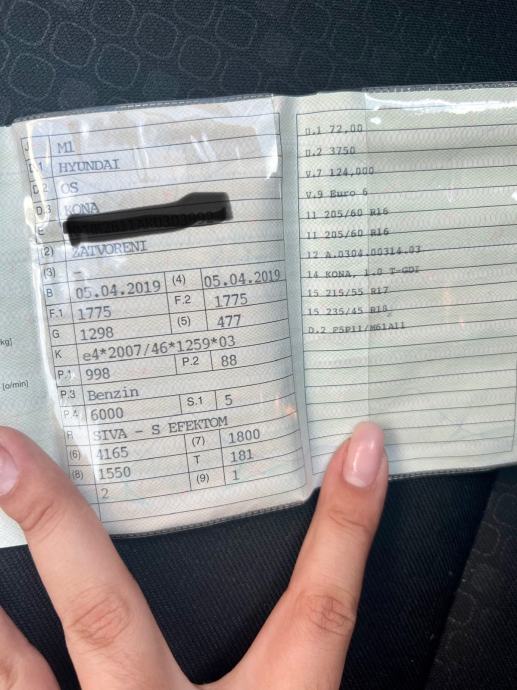 kg]
[o/min]
J M1
D.1 HYUNDAI
D.2 OS
D.3 KONA
E
(2) ZATVORENI
(3) –
B 05.04.2019 (4) 05.04.2019
F.1 1775 F.2 1775
G 1298 (5) 477
K e4*2007/46*1259*03
P.1 998 P.2 88
P.3 Benzin
P.4 6000 S.1 5
R SIVA – S EFEKTOM
(6) 4165 (7) 1800
(8) 1550 T 181
2 (9) 1
U.1 72,00
U.2 3750
V.7 124,000
V.9 Euro 6
11 205/60 R16
11 205/60 R16
12 A.0304.00314.03
14 KONA, 1.0 T-GDI
15 215/55 R17
15 235/45 R18
D.2 F5P11/M61A11